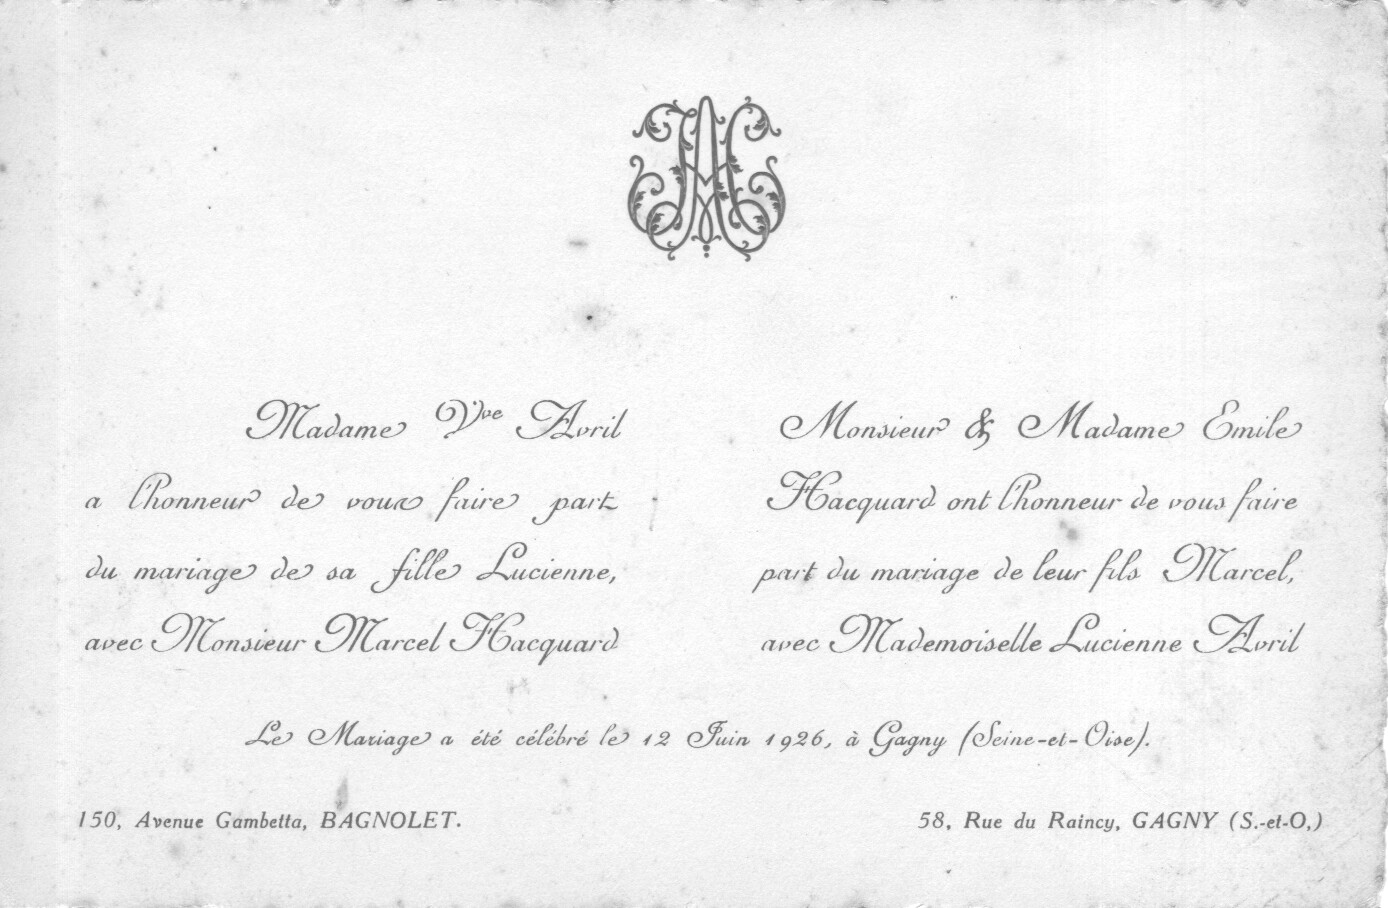 AH
Madame Vve Avril
a l'honneur de vous faire part
du mariage de sa fille Lucienne,
avec Monsieur Marcel Hacquard
Monsieur & Madame Emile
Hacquard ont l'honneur de vous faire
part du mariage de leur fils Marcel,
avec Mademoiselle Lucienne Avril
Le Mariage a été célébré le 12 Juin 1926, à Gagny (Seine-et-Oise).
150, Avenue Gambetta, BAGNOLET.
58, Rue du Raincy, GAGNY (S.-et-O,)